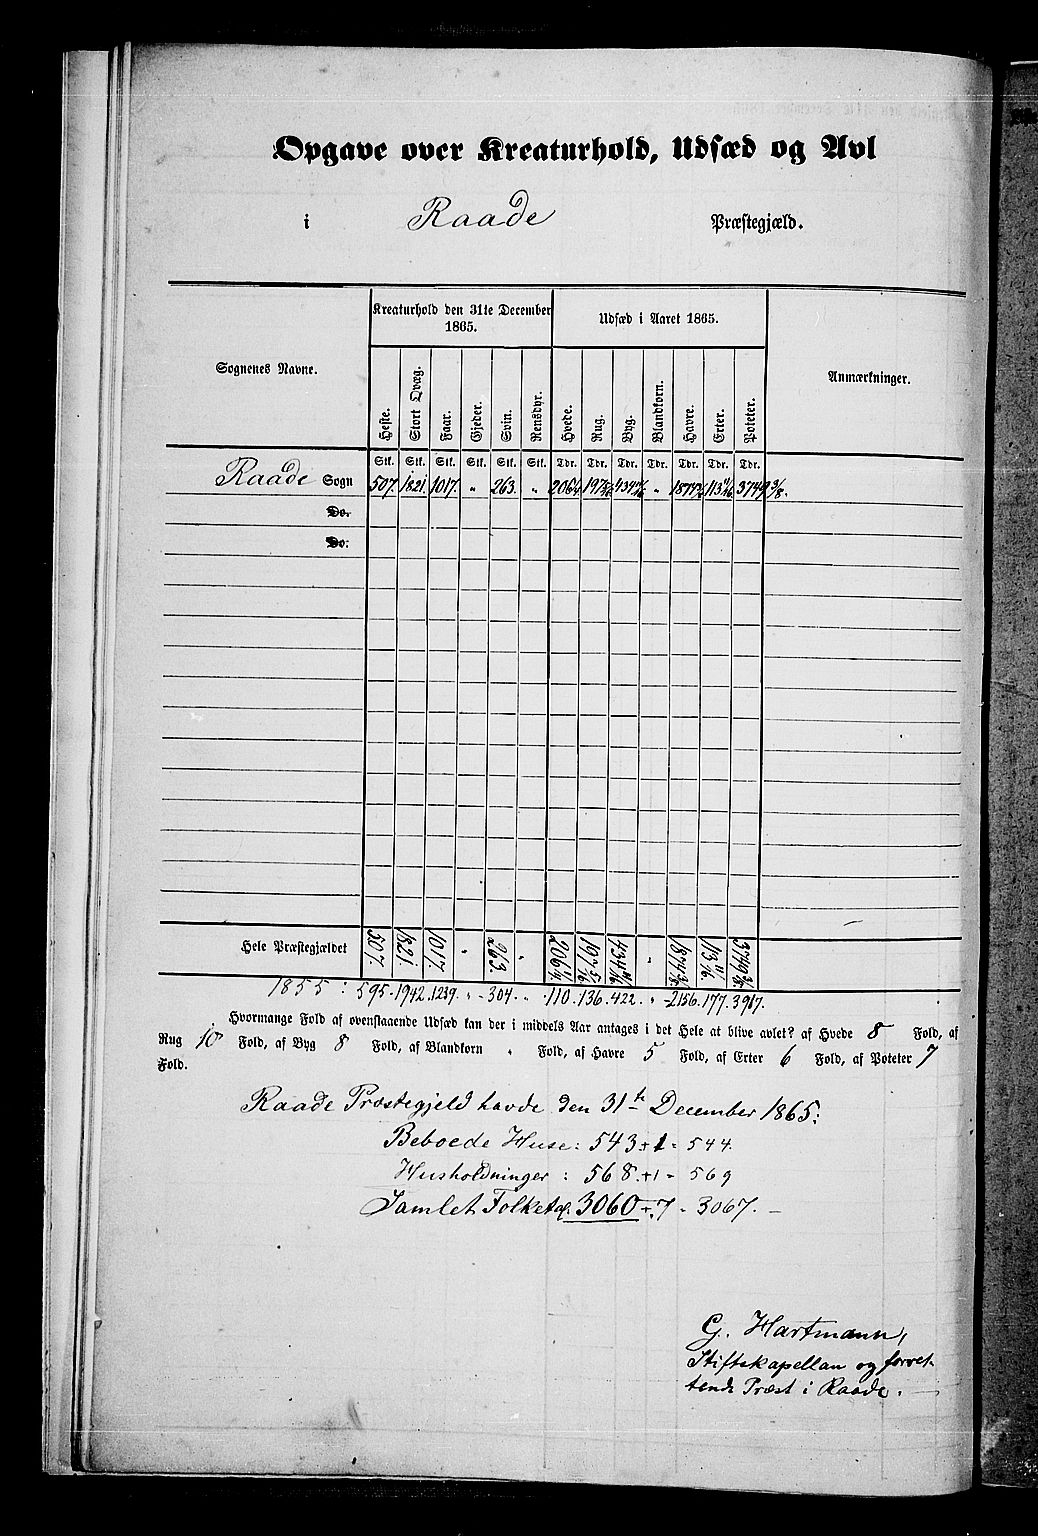 Opgave over Kreaturhold, Udsæd og Avl
i Raade Præstegjæld.
Sognenes Navne.
Kreaturhold den 31te December 1865.
Udsæd i Aaret 1865.
Anmærkninger.
Heste. Stort Qvæg. Faar. Gjeder. Svin. Rensdyr. Hvede. Rug. Byg. Blandkorn. Havre. Erter. Poteter.
Stk. Stk. Stk. Stk. Stk. Stk. Tdr. Tdr. Tdr. Tdr. Tdr. Tdr. Tdr.
Raade Sogn 507. 1821. 1017. " 263. " " 113 11/16. 3749 3/8.
Do.
Do.
Hele Præstegjældet 507. 1821. 1017. " 263. " 197 5/16 " 113 11/16. 3749 3/8
1855: 595. 1942. 1239. " 304. " 110. 136. 422. " 2156. 177. 3917.
Hvormange Fold af ovenstaaende Udsæd kan der i middels Aar antages i det Hele at blive avlet? af Hvede 8 Fold, af
Rug 10 Fold, af Byg 8 Fold, af Blandkorn " Fold, af Havre 5 Fold, af Erter 6 Fold, af Poteter 7
Fold.
Raade Præstegjeld havde den 31te December 1865:
Beboede Huse: 543 + 1 = 544.
Husholdninger: 568. + 1 = 569
Samlet Folketal. 3060 + 7 = 3067.
G. Hartmann,
Stiftskapellan og forret-
tende Præst i Raade.